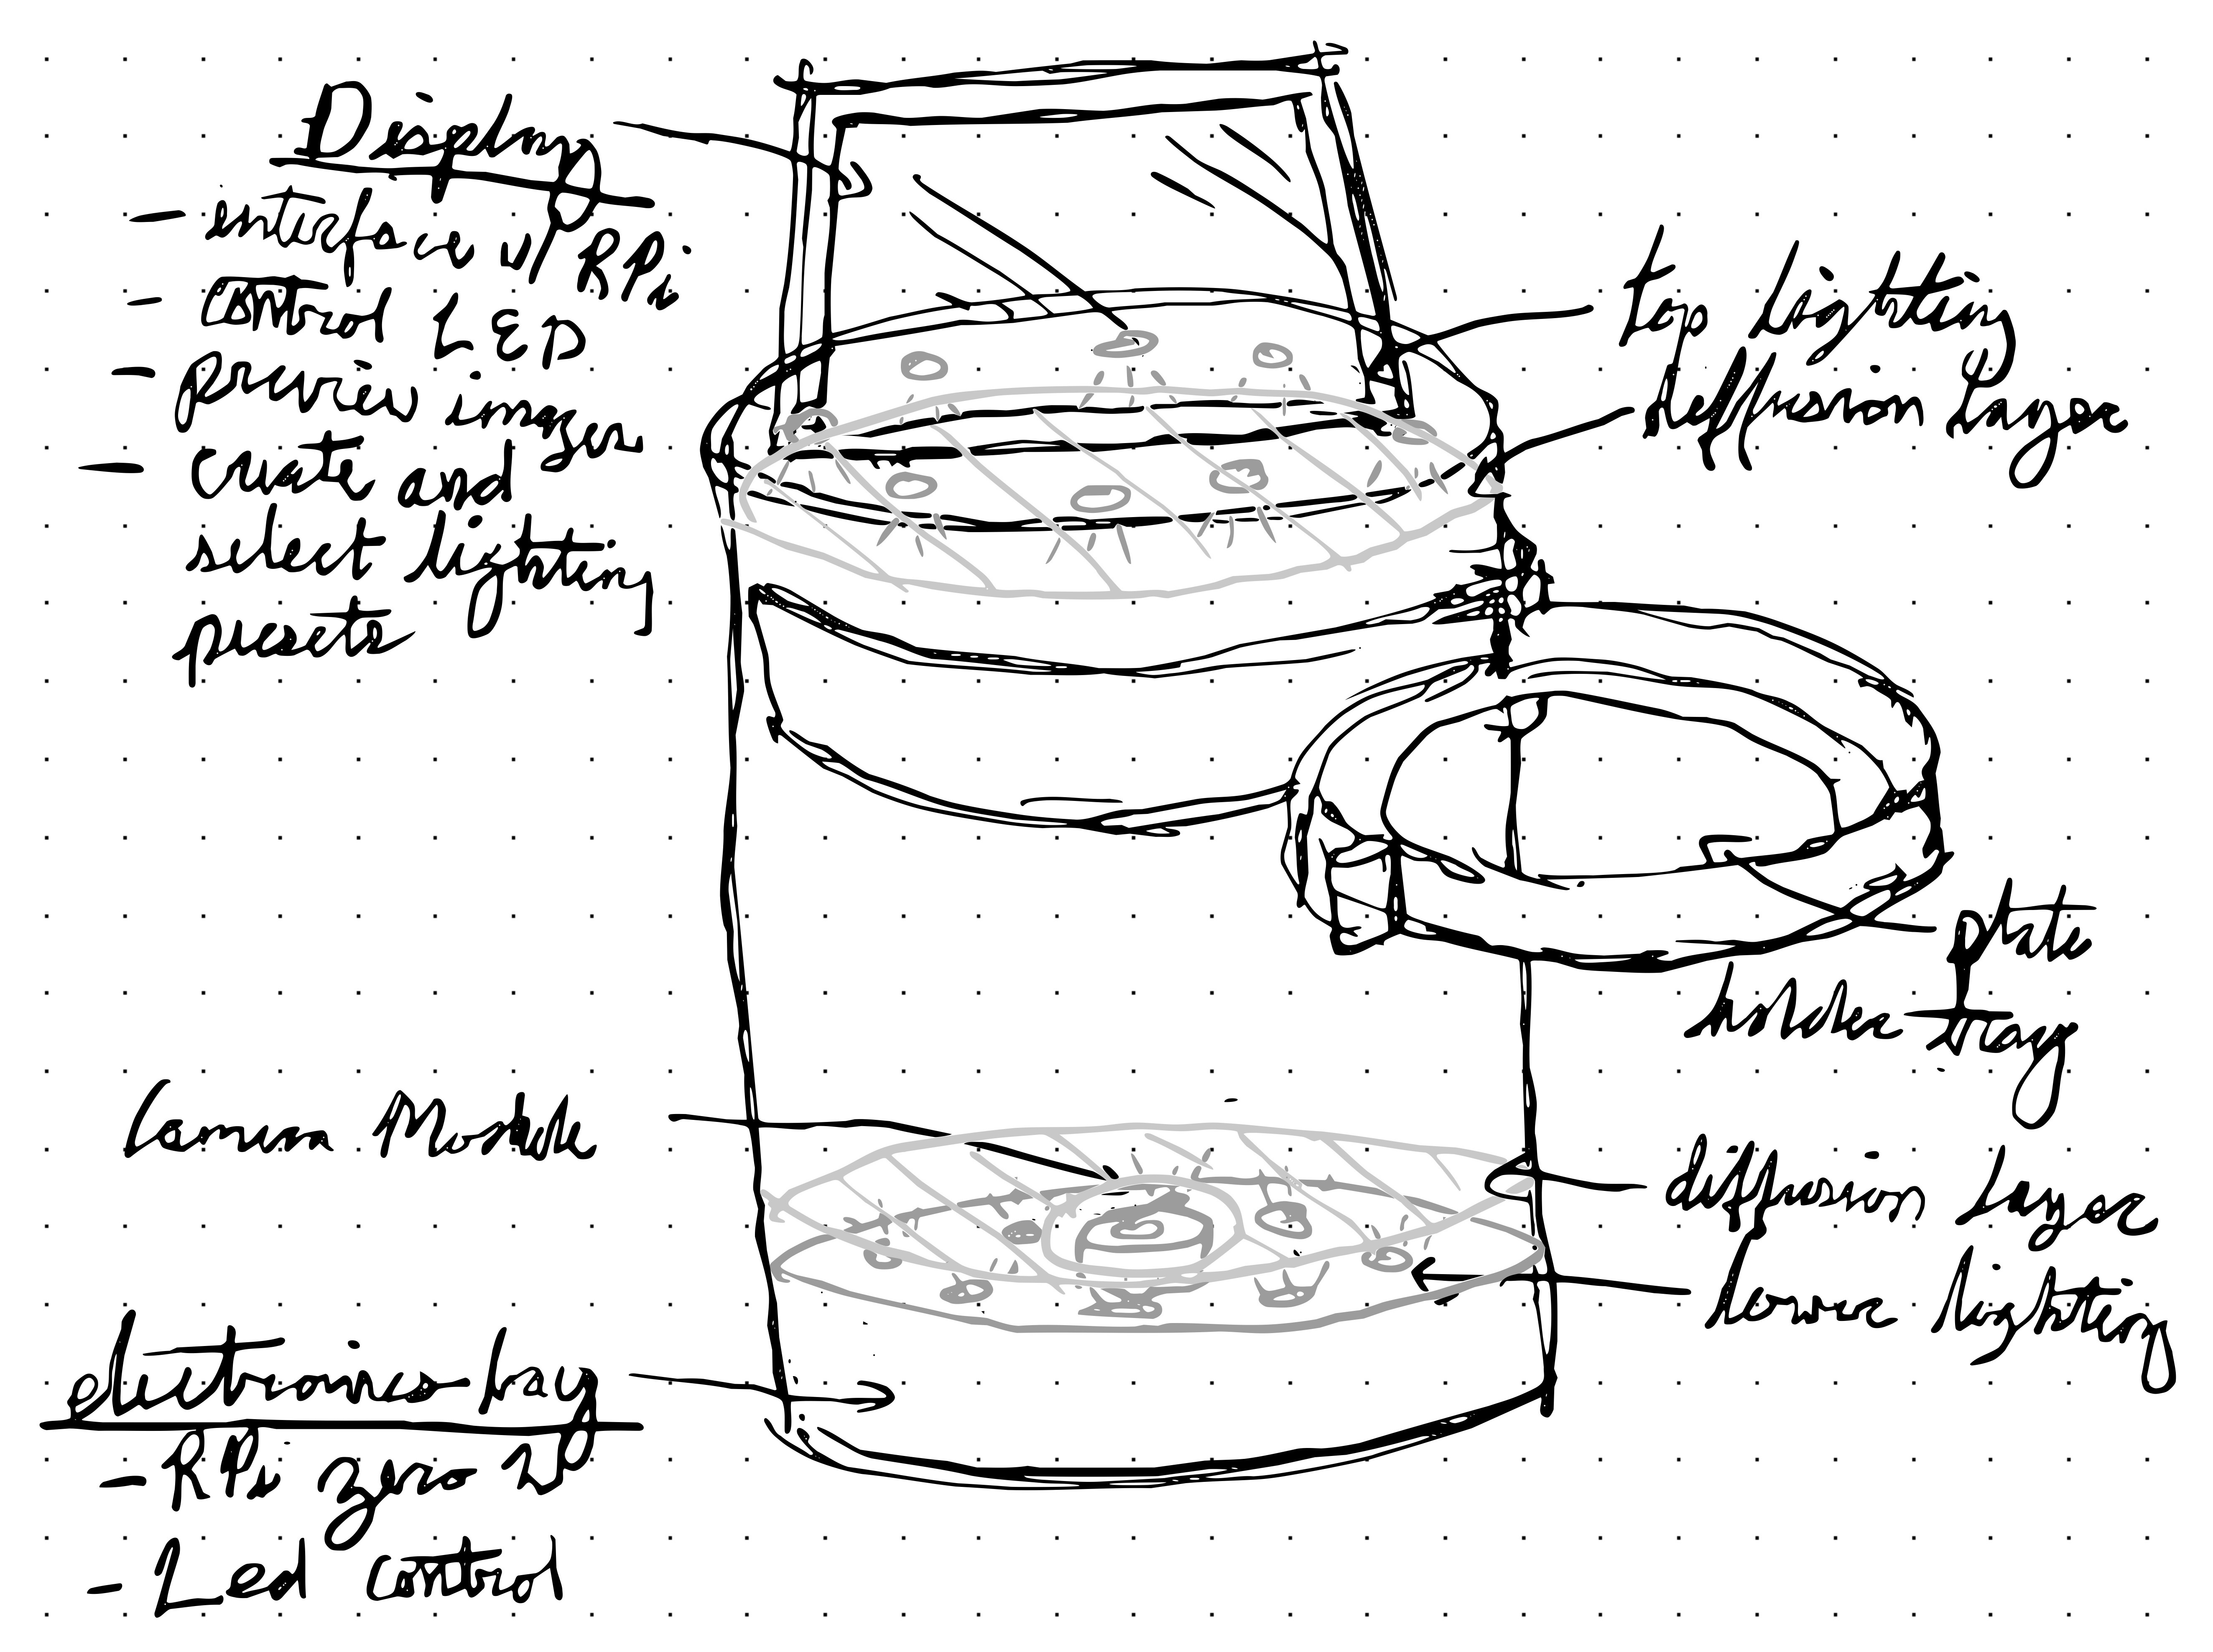 Display
- interface w/ RPi
- control LED
- preview images
- create and
select lighting
presets
top lighting
diffusion layer
plate
holder tray
Camera Module
diffusion layer
lower lighting
electronics bay
- RPi zero 2
- Led control